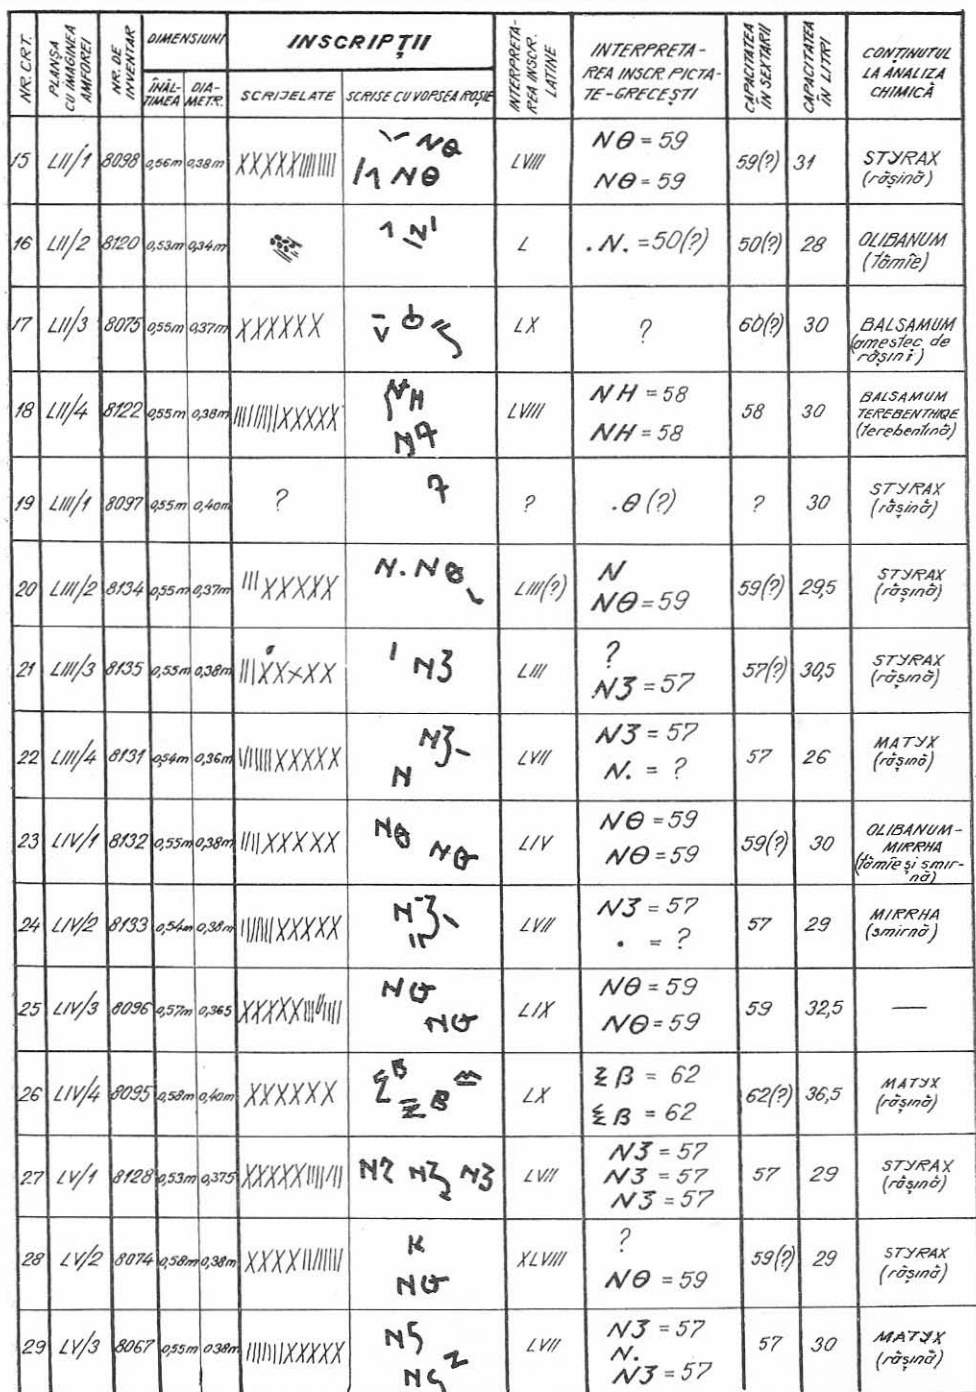 NR. CRT. | PLANȘA CU IMAGINEA AMFOREI | NR. DE INVENTAR | DIMENSIUNI | INSCRIPȚII | INTERPRETAREA INSCR. LATINE | INTERPRETA-REA INSCR PICTA-TE-GRECEȘTI | CAPACITATEA ÎN SEXTARII | CAPACITATEA ÎN LITRI | CONȚINUTUL LA ANALIZA CHIMICĂ
ÎNĂLȚIMEA | DIA-METR. | SCRIJELATE | SCRISE CU VOPSEA ROȘIE
15 | LII/1 | 8098 | 0,56m | 0,38m | XXXXX |||||||| | NΘ NΘ | LVIII | NΘ = 59 NΘ = 59 | 59(?) | 31 | STYRAX (rășină)
16 | LII/2 | 8120 | 0,53m | 0,34m | N | L | .N. = 50(?) | 50(?) | 28 | OLIBANUM (tămîe)
17 | LII/3 | 8075 | 0,55m | 0,37m | XXXXXX | LX | ? | 60(?) | 30 | BALSAMUM (amestec de rășini)
18 | LII/4 | 8122 | 0,55m | 0,38m | ||||||||XXXXX | NH | LVIII | NH = 58 NH = 58 | 58 | 30 | BALSAMUM TEREBENTHIQE (terebentină)
19 | LIII/1 | 8097 | 0,55m | 0,40m | ? | ? | .Θ (?) | ? | 30 | STYRAX (rășină)
20 | LIII/2 | 8134 | 0,55m | 0,37m | |||XXXXX | N. NΘ | LIII(?) | N NΘ = 59 | 59(?) | 29,5 | STYRAX (rășină)
21 | LIII/3 | 8135 | 0,55m | 0,38m | |||XXXXX | N3 | LIII | ? N3 = 57 | 57(?) | 30,5 | STYRAX (rășină)
22 | LIII/4 | 8131 | 0,54m | 0,36m | |||||||XXXXX | N3 N | LVII | N3 = 57 N. = ? | 57 | 26 | MATYX (rășină)
23 | LIV/1 | 8132 | 0,55m | 0,38m | ||||XXXXX | NΘ NΘ | LIV | NΘ = 59 NΘ = 59 | 59(?) | 30 | OLIBANUM-MIRRHA (tămîe și smirnă)
24 | LIV/2 | 8133 | 0,54m | 0,38m | |||||||XXXXX | N3 | LVII | N3 = 57 . = ? | 57 | 29 | MIRRHA (smirnă)
25 | LIV/3 | 8096 | 0,57m | 0,365 | XXXXX||||||||| | NΘ NΘ | LIX | NΘ = 59 NΘ = 59 | 59 | 32,5 | —
26 | LIV/4 | 8095 | 0,58m | 0,40m | XXXXXX | LX | ΞB = 62 ΞB = 62 | 62(?) | 36,5 | MATYX (rășină)
27 | LV/1 | 8128 | 0,53m | 0,375 | XXXXX||||||| | N3 N3 N3 | LVII | N3 = 57 N3 = 57 N3 = 57 | 57 | 29 | STYRAX (rășină)
28 | LV/2 | 8074 | 0,58m | 0,38m | XXXX|||||||| | K NΘ | XLVIII | ? NΘ = 59 | 59(?) | 29 | STYRAX (rășină)
29 | LV/3 | 8067 | 0,55m | 0,38m | |||||||XXXXX | LVII | N3 = 57 N. N3 = 57 | 57 | 30 | MATYX (rășină)